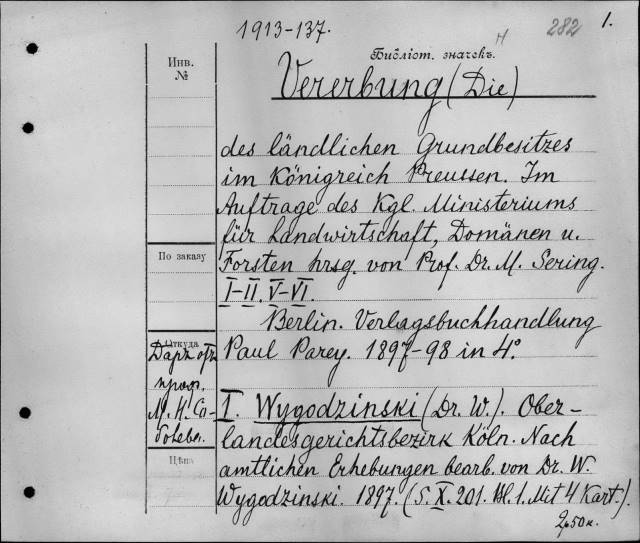 1913-137.
282
1.
Н
Библіот. значекъ.
Инв.
№
Vererbung (Die)
des ländlichen Grundbesitzes
im Königreich Preussen. Im
Auftrage des Kgl. Ministeriums
für Landwirtschaft, Domänen u.
По заказу
Forsten hrsg. von Prof. Dr. M. Sering.
I-II. V-VI.
Berlin. Verlagsbuchhandlung
Откуда
Paul Parey. 1897-98 in 4°
Даръ отъ
проф.
М. Н. Со-
болева.
I. Wygodzinski (Dr. W.). Ober-
landesgerichtsbezirk Köln. Nach
Цѣна
amtlichen Erhebungen bearb. von Dr. W.
Wygodzinski. 1897. (S. X. 201. Bl. 1. Mit 4 Kart.).
2р50к.